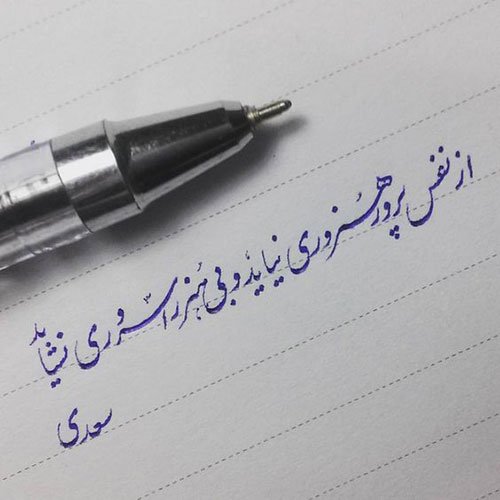 از نفس پرور هنروری نیاید و بی هنر را سروری نشاید
سعدی